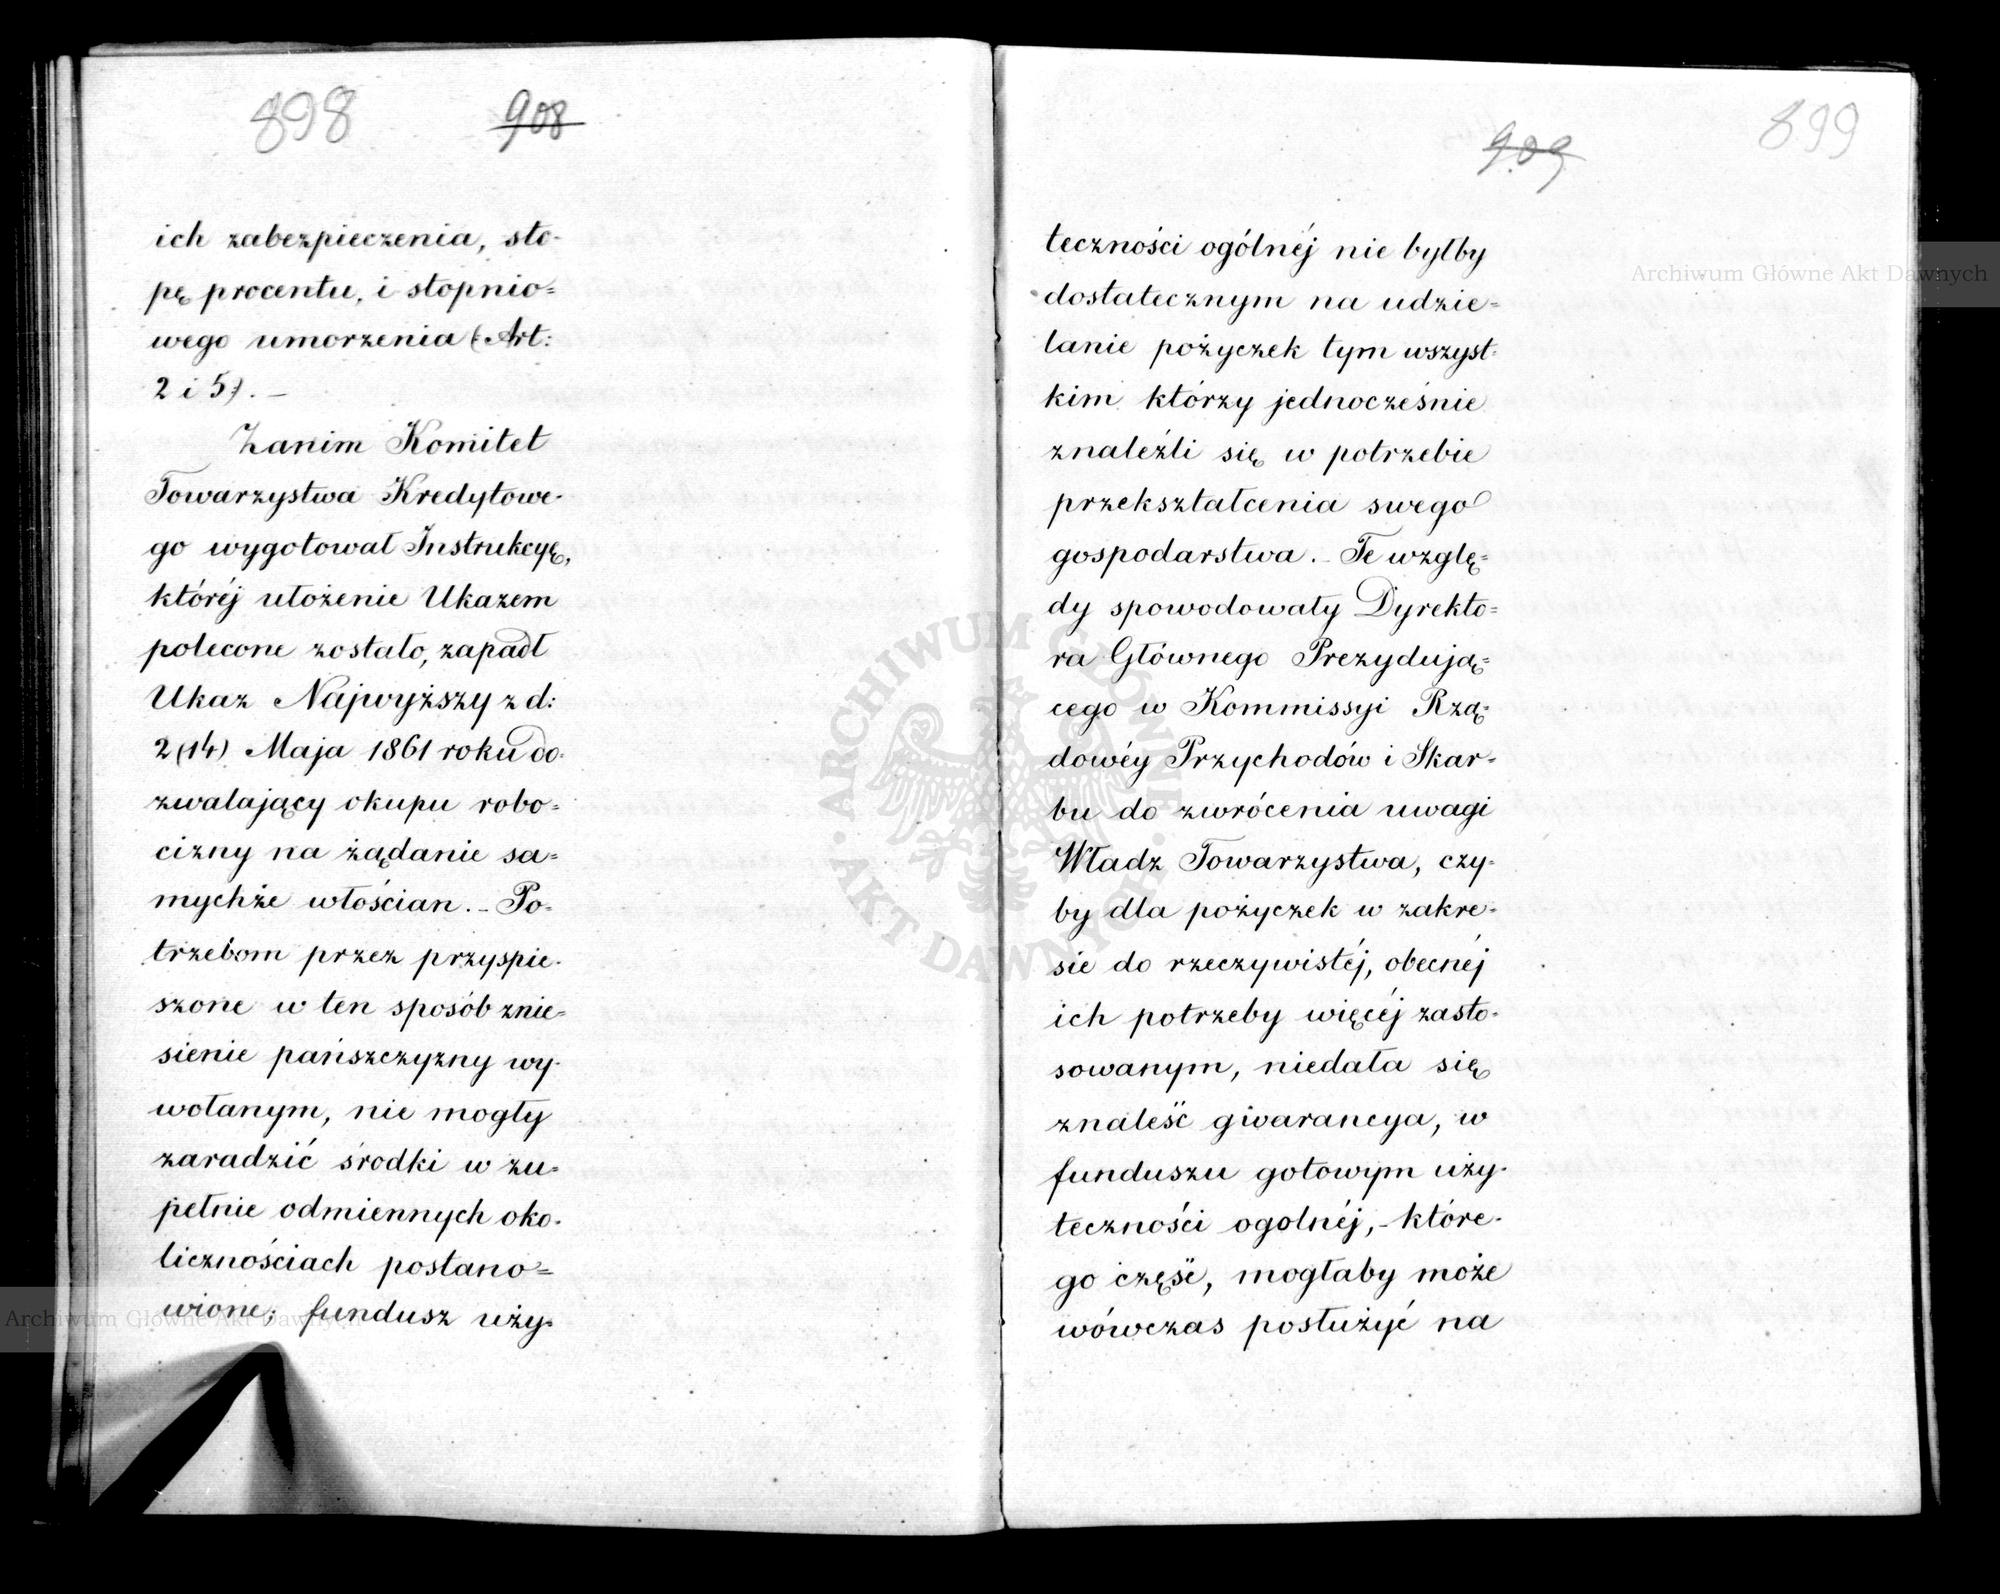 898 908
ich zabezpieczenia, sto-
pę procentu, i stopnio=
wego umorzenia (Art:
2 i 5). —
Zanim Komitet
Towarzystwa Kredytowe-
go wygotował Instrukcyę,
któréj ułożenie Ukazem
polecone zostało, zapadł
Ukaz Najwyższy z d:
2 (14) Maja 1861 roku do-
zwalający okupu robo=
cizny na żądanie sa=
mychże włościan. – Po-
trzebom przez przyspie-
szone w ten sposób znie=
sienie pańszczyzny wy-
wołanym, nie mogły
zaradzić środki w zu-
pełnie odmiennych oko-
licznościach postano=
wione; fundusz uży-
909 899
teczności ogólnéj nie byłby
dostatecznym na udzie=
lanie pożyczek tym wszyst-
kim którzy jednocześnie
znaleźli się w potrzebie
przekształcenia swego
gospodarstwa. – Te wzglę=
dy spowodowały Dyrekto=
ra Głównego Prezydują=
cego w Kommissyi Rzą=
dowéy Przychodów i Skar-
bu do zwrócenia uwagi
Władz Towarzystwa, czy-
by dla pożyczek w zakre-
sie do rzeczywistéj, obecnéj
ich potrzeby więcéj zasto-
sowanym, niedała się
znaleść gwarancya, w
funduszu gotowym uży-
teczności ogolnéj, – które-
go część, mogłaby może
wówczas posłużyć na
Archiwum Główne Akt Dawnych
Archiwum Główne Akt Dawnych
ARCHIWUM GŁÓWNE AKT DAWNYCH